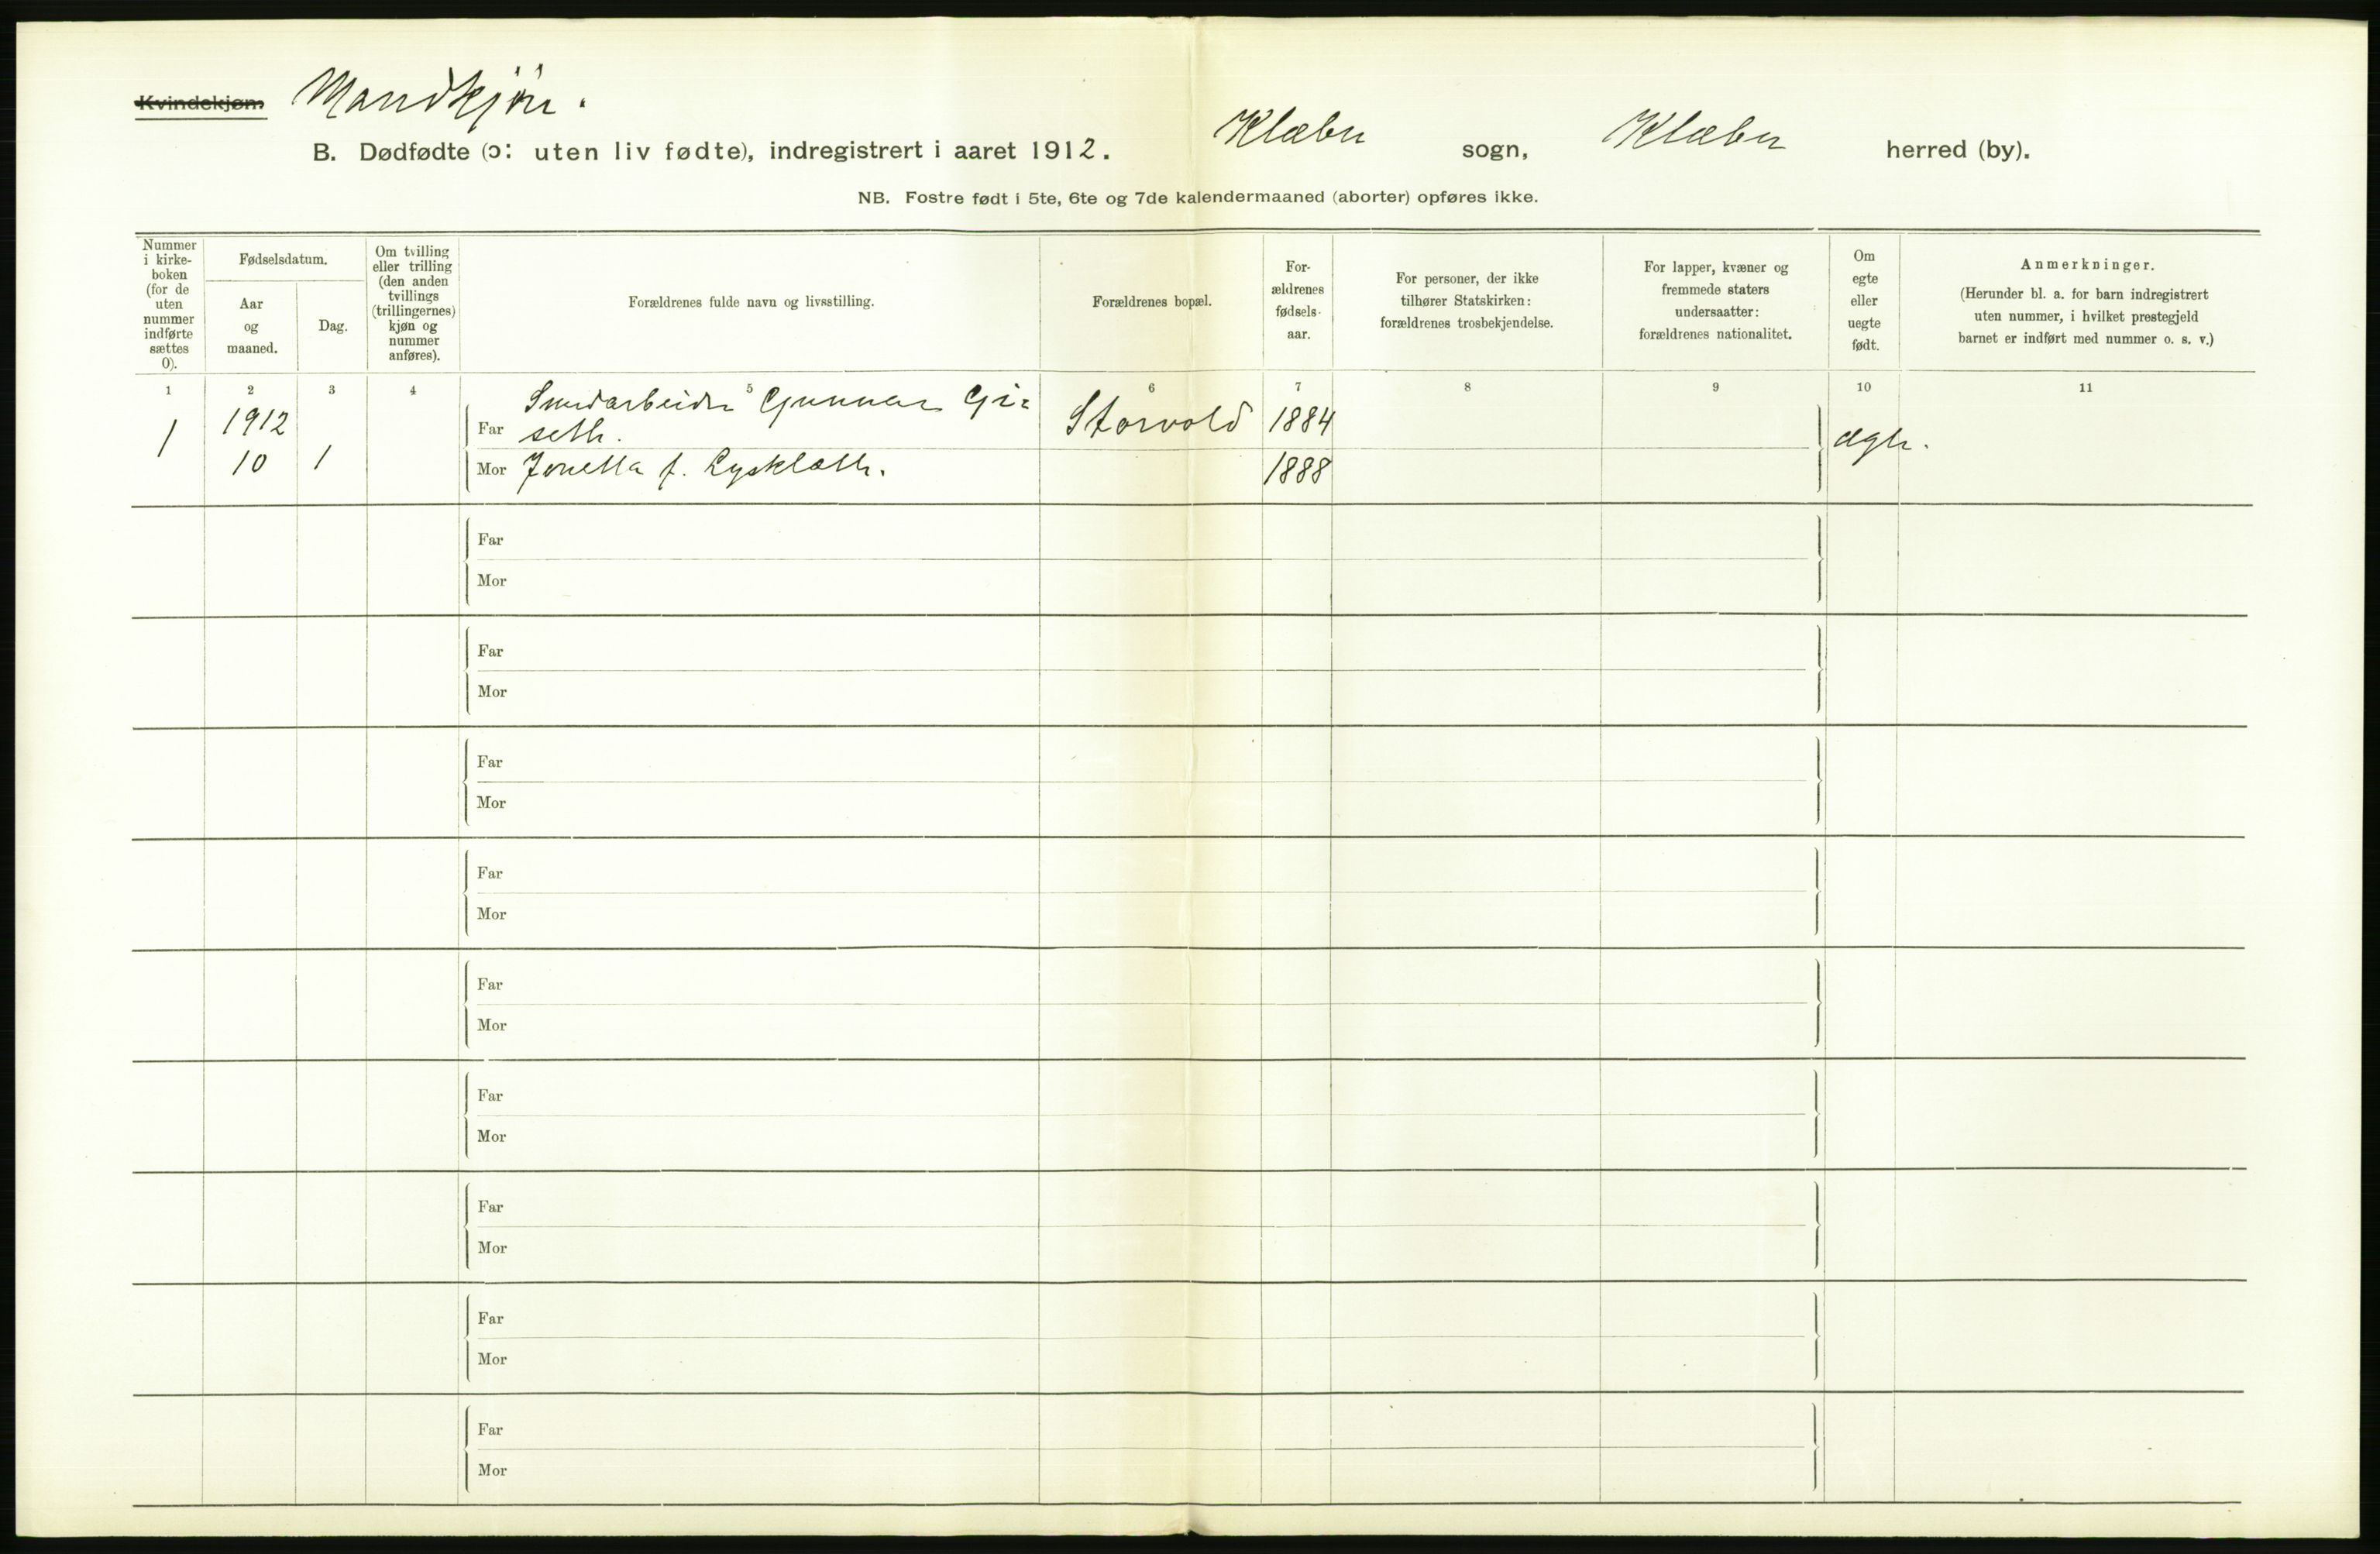 Kvindekjøn. Mandkjøn.
B. Dødfødte (ɔ: uten liv fødte), indregistrert i aaret 1912. Klæbu sogn, Klæbu herred (by).
NB. Fostre født i 5te, 6te og 7de kalendermaaned (aborter) opføres ikke.
Nummer
i kirke-
boken
(for de
uten
nummer
indførte
sættes
0).
Fødselsdatum.
Aar
og
maaned.
Dag.
Om tvilling
eller trilling
(den anden
tvillings
(trillingernes)
kjøn og
nummer
anføres).
Forældrenes fulde navn og livsstilling.
Forældrenes bopæl.
For-
ældrenes
fødsels-
aar.
For personer, der ikke
tilhører Statskirken:
forældrenes trosbekjendelse.
For lapper, kvæner og
fremmede staters
undersaatter:
forældrenes nationalitet.
Om
egte
eller
uegte
født.
Anmerkninger.
(Herunder bl. a. for barn indregistrert
uten nummer, i hvilket prestegjeld
barnet er indført med nummer o. s. v.)
1 2 3 4 5 6 7 8 9 10 11
1
1912
10 1
Far Smedarbeider Gunnar Gi=
seth. Storvold 1884
Mor Jonetta f. Lysklætt. 1888
ægte.
Far
Mor
Far
Mor
Far
Mor
Far
Mor
Far
Mor
Far
Mor
Far
Mor
Far
Mor
Far
Mor